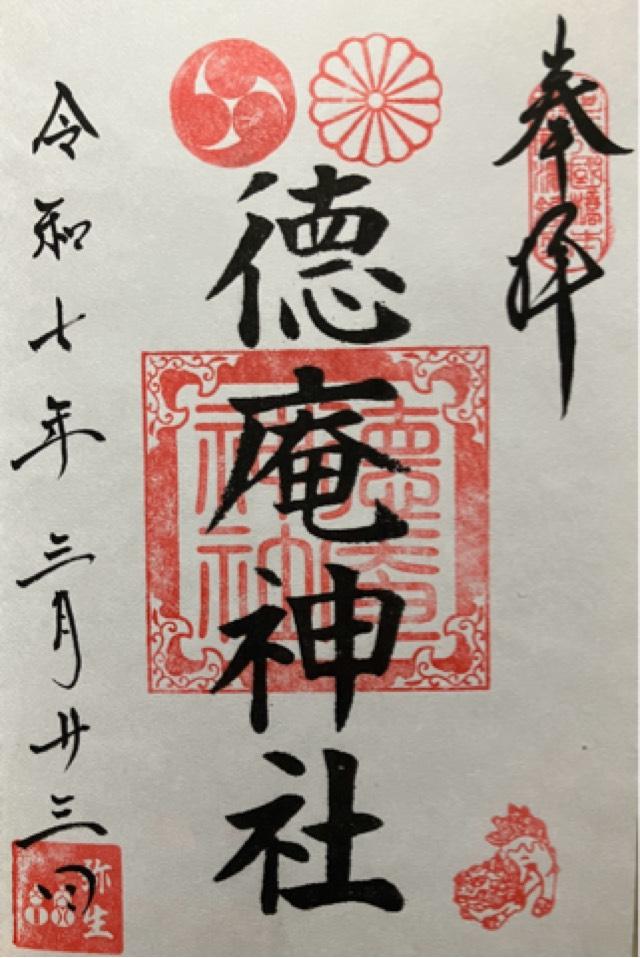 奉拝
徳庵神社
徳庵神社
令和七年三月廿三日
弥生